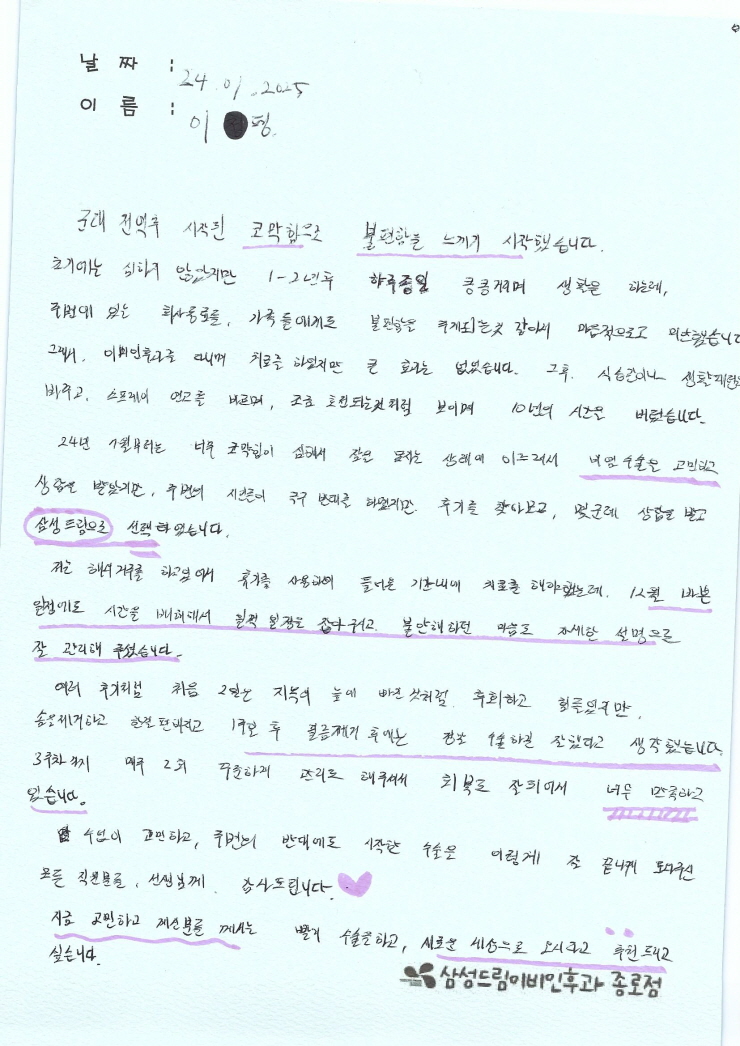 날 짜 : 24. 01. 2025
이 름 : 이 평.
군대 전역후 시작된 코막힘으로 불편함을 느끼기 시작했습니다.
초기에는 심하지 않았지만 1-2년후 하루종일 킁킁거리며 생활을 하는데,
주변에 있는 회사동료들, 가족들에게도 불편함을 주게되는것 같아서 마음적으로도
그래서, 이비인후과를 다니며 치료를 하였지만 큰 효과는 없었습니다. 그후, 식습관이나
바꾸고, 스프레이 연고를 바르며, 보이며 10년의 시간을 버텼습니다.
24년 1월부터는 너무 코막힘이 심해서 잠을 못자는 상태에 이르러서 비염수술을 고민하고
상담을 받았지만, 주변의 시선들이 반대를 하였지만 후기를 찾아보고, 몇군데 상담을 받고
삼성드림으로 선택하였습니다.
저는 해외거주를 하고있어서 휴가를 사용하여 들어온 기간내에 치료를 해야했는데, 12월 바쁜
일정에도 시간을 배려해서 일정을 잡아주고, 불안해하던 마음도 자세한 설명으로
잘 관리해 주셨습니다.
여러 후기처럼 처음 2일은 지옥의 늪에 빠진것처럼 후회하고 힘들었지만,
솜을제거하고 한결편해지고 1주일 후 후에는 정말 수술하길 잘했다고 생각했습니다.
3주차까지 매주 2회 꾸준하게 관리도 해주셔서 회복도 잘되어서 너무 만족하고
있습니다.
수없이 고민하고, 주변의 반대에도 시작한 수술을 이렇게 잘 끝나게 도와주신
모든 직원분들, 선생님께 감사드립니다.
지금 고민하고 계신분들 께서는 빨리 수술을하고, 새로운 세상으로 오시라고 추천드리고
싶습니다.
삼성드림이비인후과 종로점